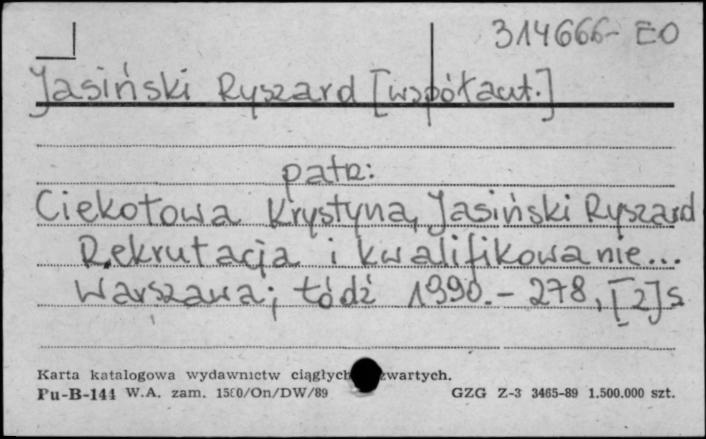 314666- EO
Jasiński Ryszard [współaut.]
patrz:
Ciekotowa Krystyna, Jasiński Ryszard
Rekrutacja i kwalifikowanie...
Warszawa; Łódź 1990.- 278, [2]s
Karta katalogowa wydawnictw ciągłych zwartych.
Pu-B-144 W.A. zam. /On/DW/89 GZG Z-3 3465-89 1.500.000 szt.